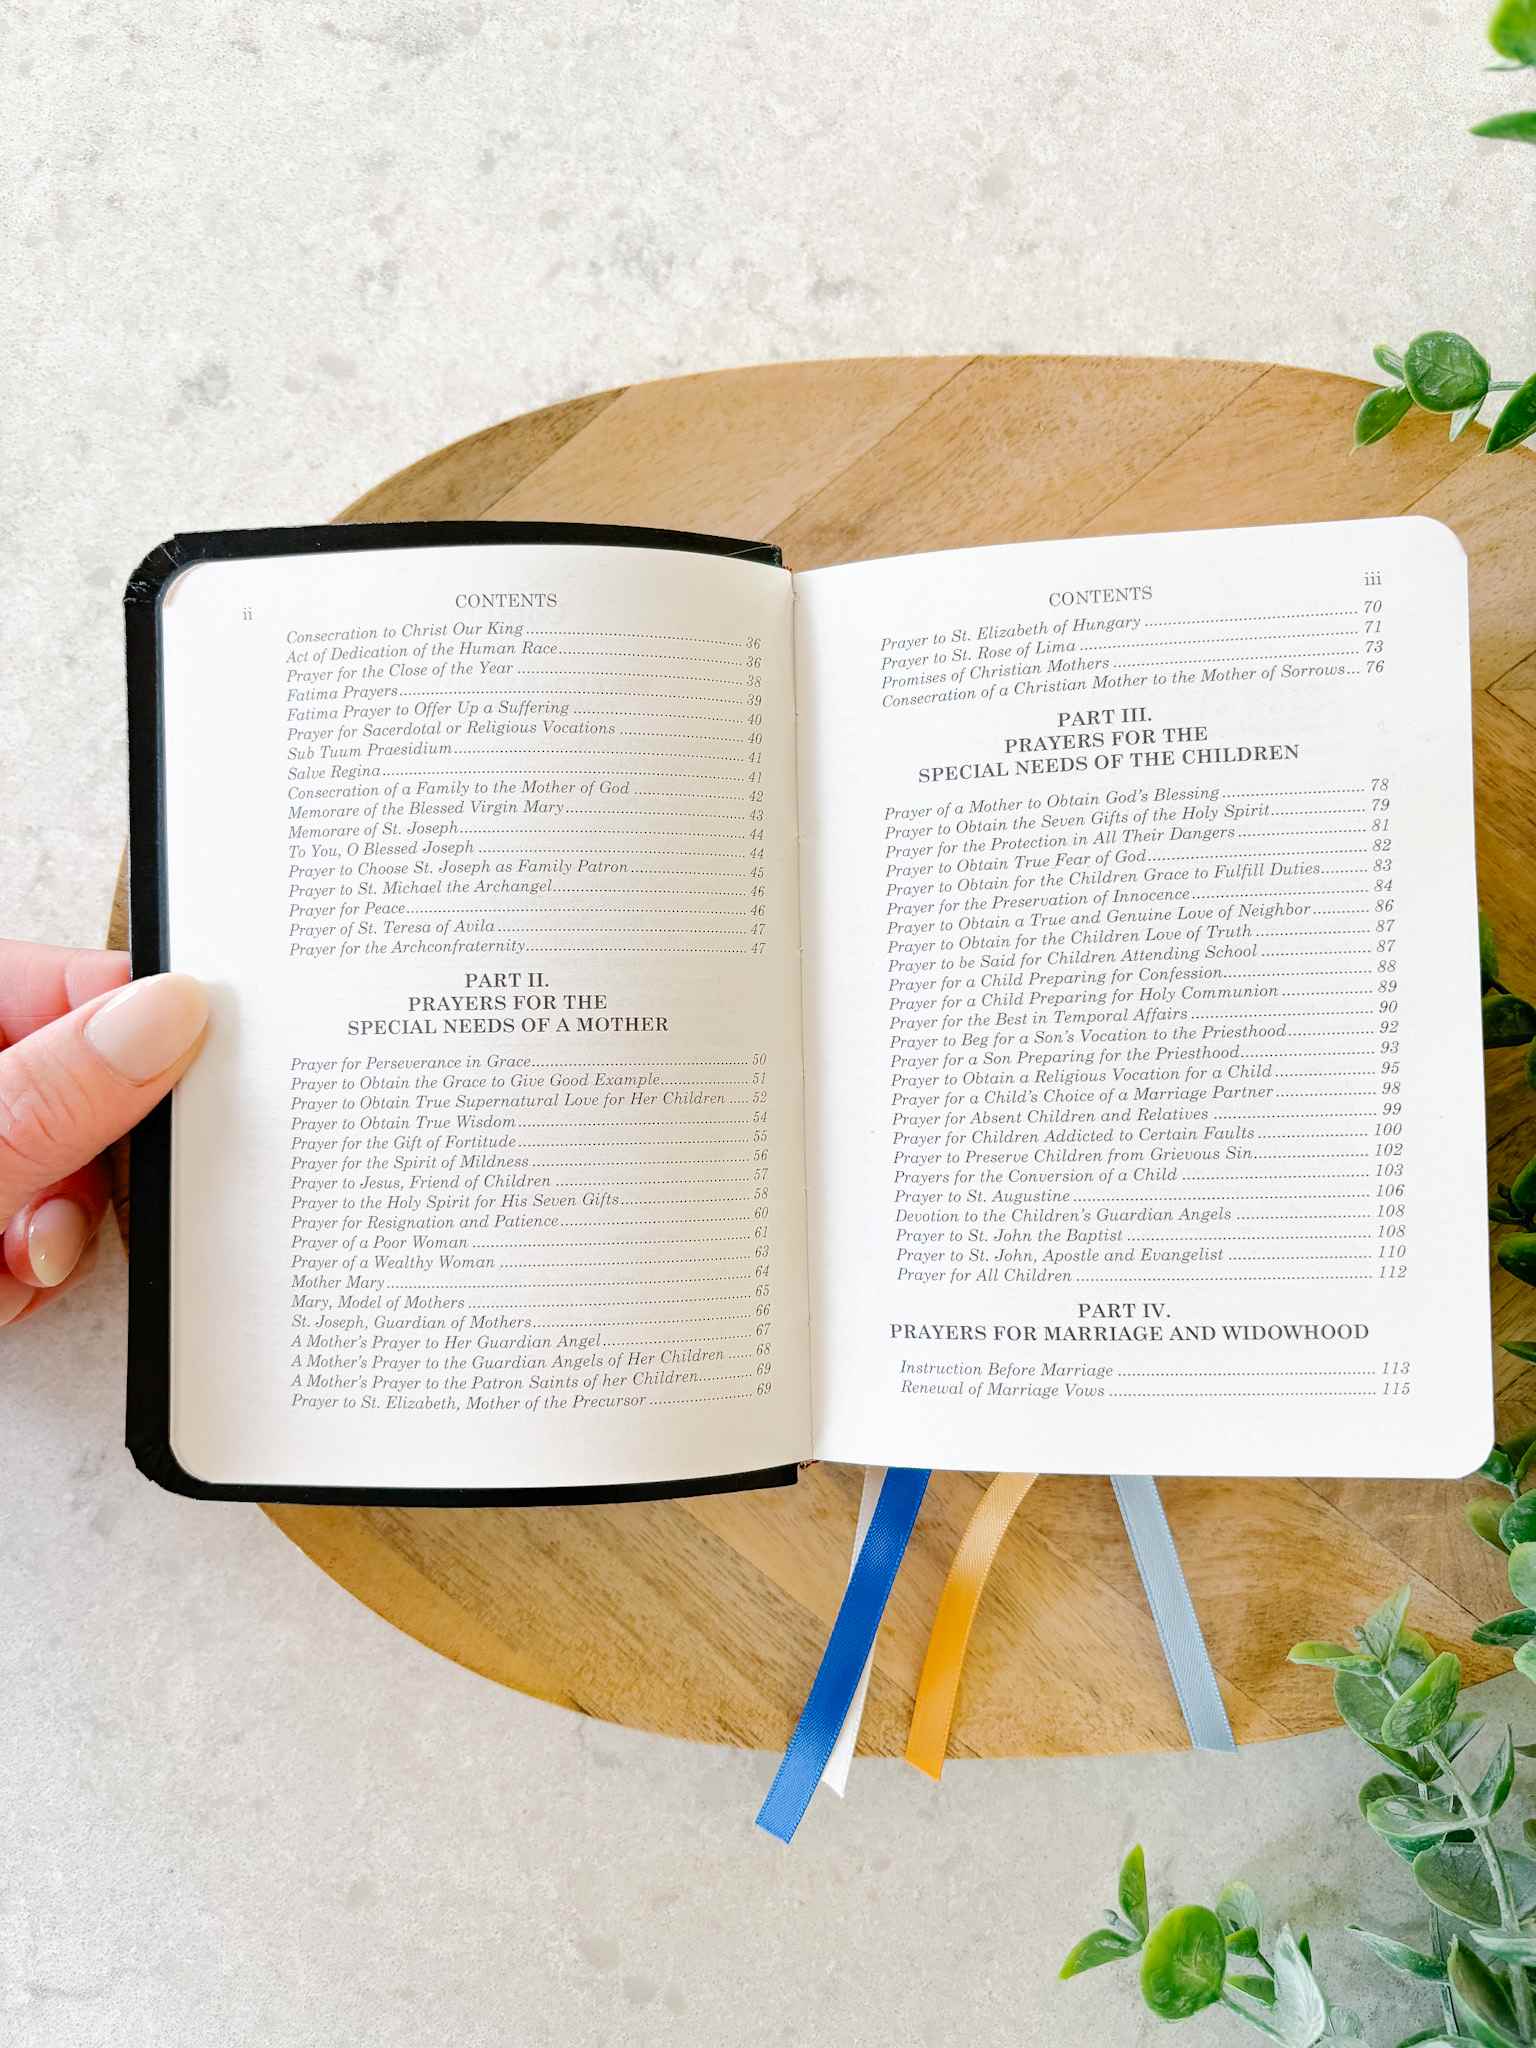 ii
CONTENTS
Consecration to Christ Our King........ 36
Act of Dedication of the Human Race........ 36
Prayer for the Close of the Year ........ 38
Fatima Prayers........ 39
Fatima Prayer to Offer Up a Suffering ........ 40
Prayer for Sacerdotal or Religious Vocations ........ 40
Sub Tuum Praesidium........ 41
Salve Regina........ 41
Consecration of a Family to the Mother of God ........ 42
Memorare of the Blessed Virgin Mary........ 43
Memorare of St. Joseph........ 44
To You, O Blessed Joseph ........ 44
Prayer to Choose St. Joseph as Family Patron........ 45
Prayer to St. Michael the Archangel........ 46
Prayer for Peace........ 46
Prayer of St. Teresa of Avila........ 47
Prayer for the Archconfraternity........ 47
PART II.
PRAYERS FOR THE
SPECIAL NEEDS OF A MOTHER
Prayer for Perseverance in Grace........ 50
Prayer to Obtain the Grace to Give Good Example........ 51
Prayer to Obtain True Supernatural Love for Her Children ..... 52
Prayer to Obtain True Wisdom ........ 54
Prayer for the Gift of Fortitude........ 55
Prayer for the Spirit of Mildness........ 56
Prayer to Jesus, Friend of Children ........ 57
Prayer to the Holy Spirit for His Seven Gifts........ 58
Prayer for Resignation and Patience........ 60
Prayer of a Poor Woman ........ 61
Prayer of a Wealthy Woman ........ 63
Mother Mary........ 64
Mary, Model of Mothers ........ 65
St. Joseph, Guardian of Mothers........ 66
A Mother's Prayer to Her Guardian Angel........ 67
A Mother's Prayer to the Guardian Angels of Her Children ...... 68
A Mother's Prayer to the Patron Saints of her Children........ 69
Prayer to St. Elizabeth, Mother of the Precursor ........ 69
iii
CONTENTS
Prayer to St. Elizabeth of Hungary ........ 70
Prayer to St. Rose of Lima ........ 71
Promises of Christian Mothers ........ 73
Consecration of a Christian Mother to the Mother of Sorrows... 76
PART III.
PRAYERS FOR THE
SPECIAL NEEDS OF THE CHILDREN
Prayer of a Mother to Obtain God's Blessing ........ 78
Prayer to Obtain the Seven Gifts of the Holy Spirit........ 79
Prayer for the Protection in All Their Dangers ........ 81
Prayer to Obtain True Fear of God........ 82
Prayer to Obtain for the Children Grace to Fulfill Duties........ 83
Prayer for the Preservation of Innocence........ 84
Prayer to Obtain a True and Genuine Love of Neighbor........ 86
Prayer to Obtain for the Children Love of Truth ........ 87
Prayer to be Said for Children Attending School ........ 87
Prayer for a Child Preparing for Confession........ 88
Prayer for a Child Preparing for Holy Communion ........ 89
Prayer for the Best in Temporal Affairs ........ 90
Prayer to Beg for a Son's Vocation to the Priesthood........ 92
Prayer for a Son Preparing for the Priesthood........ 93
Prayer to Obtain a Religious Vocation for a Child ........ 95
Prayer for a Child's Choice of a Marriage Partner ........ 98
Prayer for Absent Children and Relatives ........ 99
Prayer for Children Addicted to Certain Faults ........ 100
Prayer to Preserve Children from Grievous Sin........ 102
Prayers for the Conversion of a Child ........ 103
Prayer to St. Augustine ........ 106
Devotion to the Children's Guardian Angels ........ 108
Prayer to St. John the Baptist ........ 108
Prayer to St. John, Apostle and Evangelist ........ 110
Prayer for All Children ........ 112
PART IV.
PRAYERS FOR MARRIAGE AND WIDOWHOOD
Instruction Before Marriage ........ 113
Renewal of Marriage Vows ........ 115